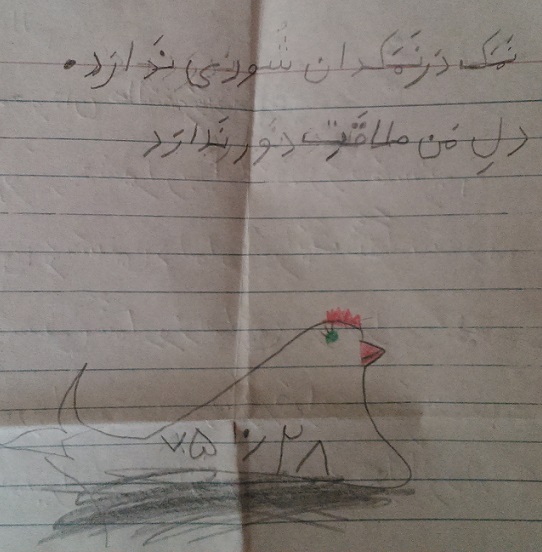 نَمَک دَر نَمَکدان شُوری نَدارَد.
دلِ مَن طاقَت دَور نَدارَد
۷۵ ۲۸